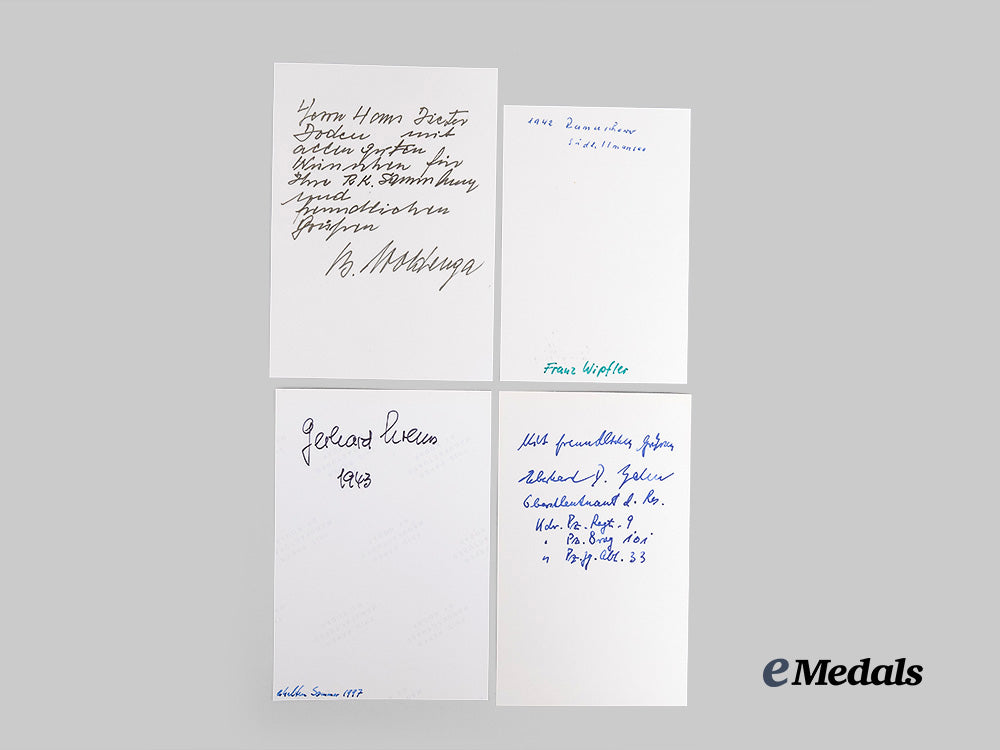 Herrn Hans Dieter
Doden mit
allen guten
Wünschen für
Ihre RK. Sammlung
und
freundlichen
Grüßen
1942
südl. Ilmensee
Franz Wipfler
Gerhard
1943
erhalten Sommer 1997
Mit freundlichen Grüßen
Eberhard
Oberstleutnant d. Res.
Kdr. Pz. Regt. 9
" Pz. Brig 101
" Pz. Jg. Abt. 33
eMedals